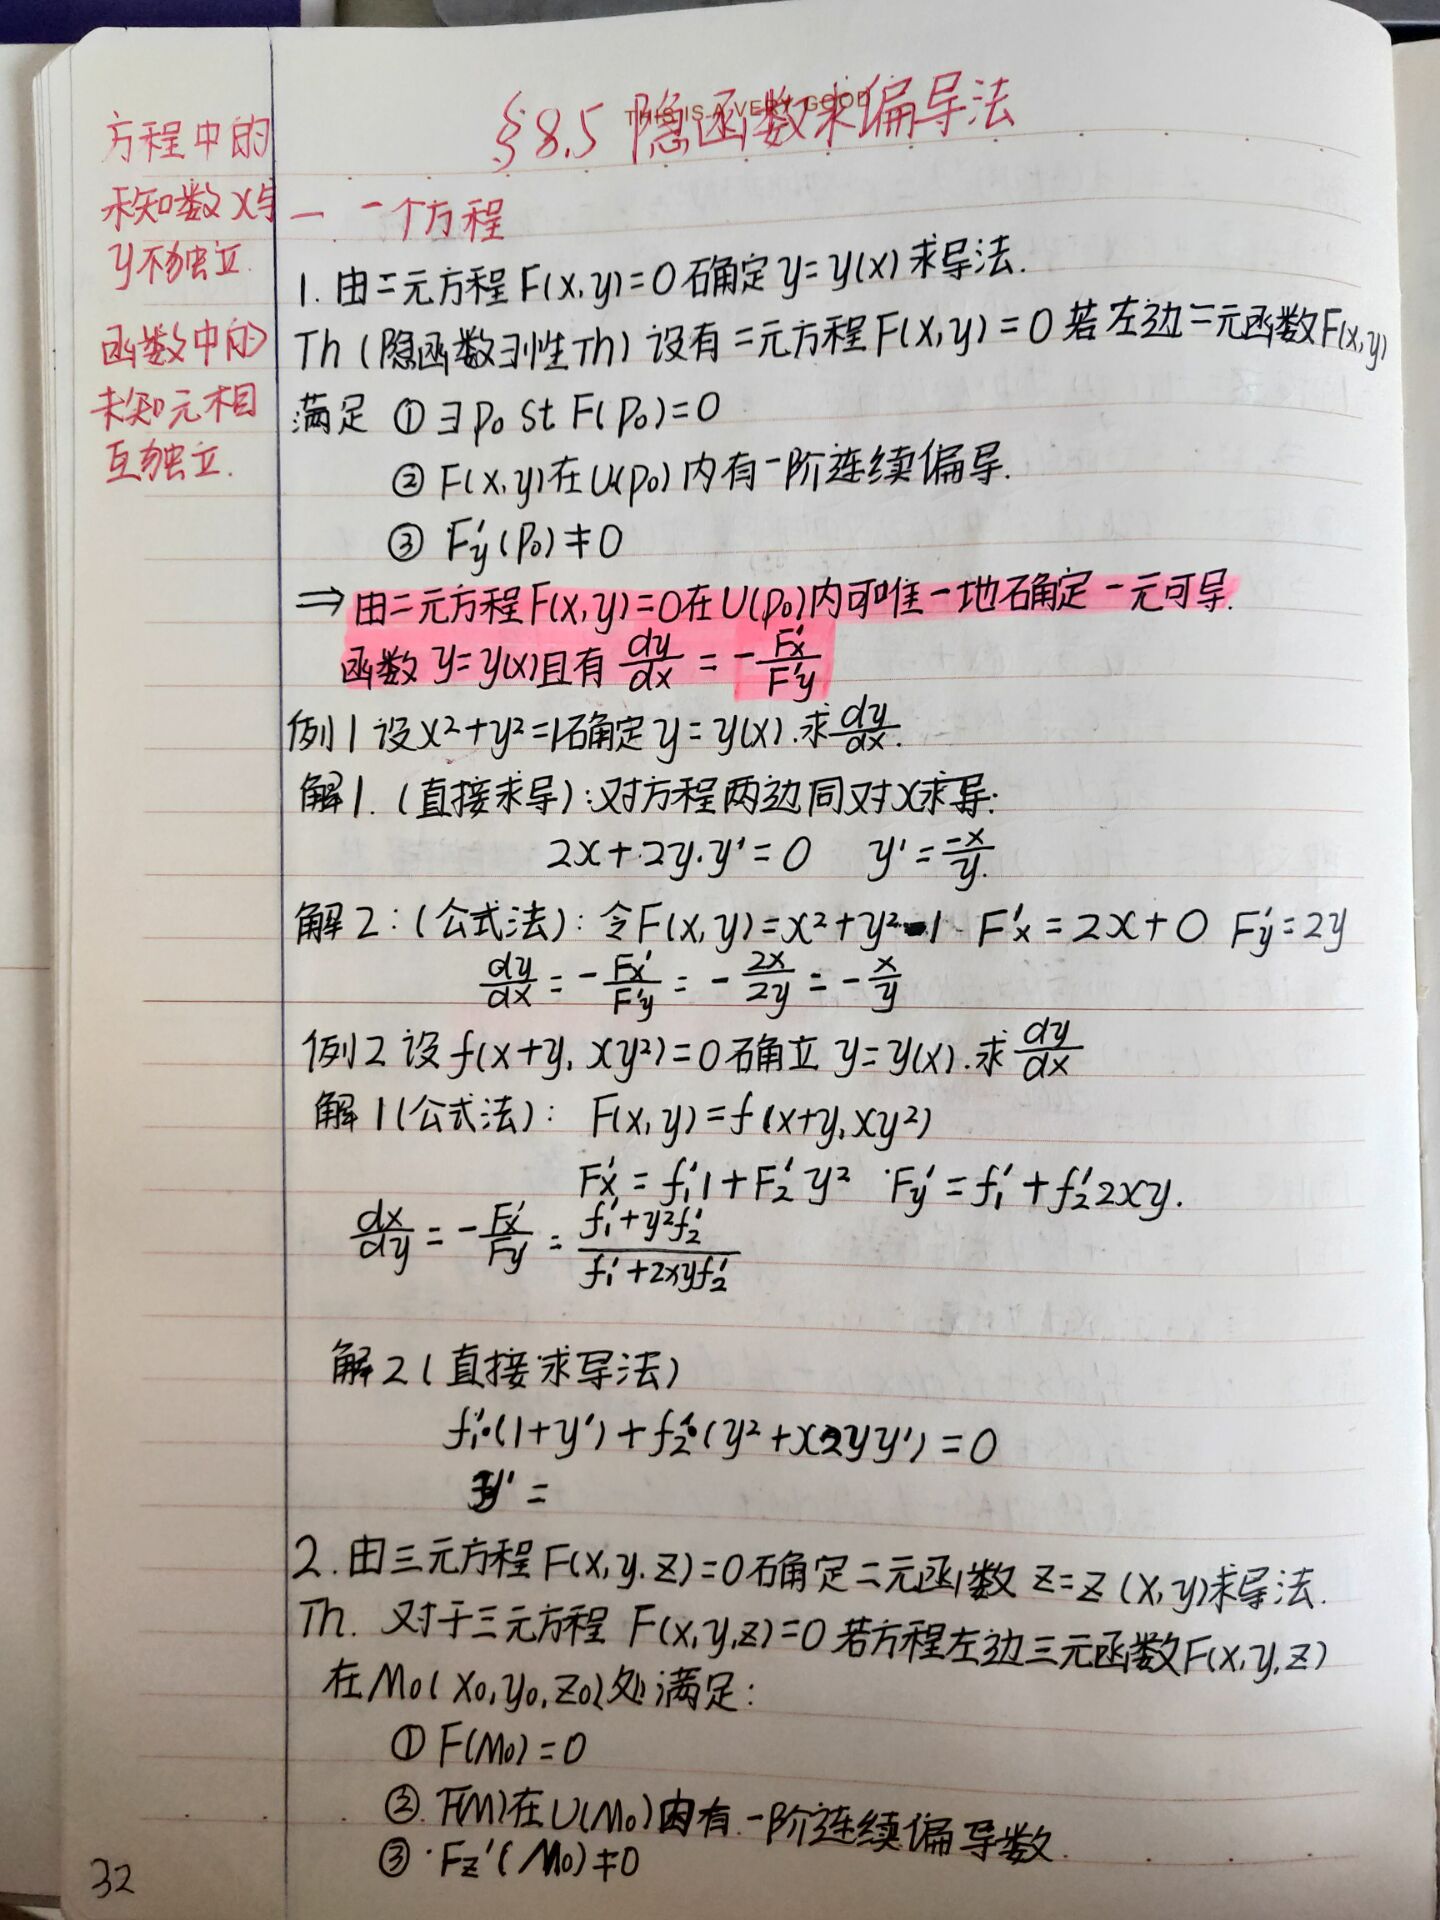 THIS IS A VERY GOOD
§8.5 隐函数求偏导法
方程中的
未知数x与
y不独立.
函数中的
未知元相
互独立.
一. 一个方程
1. 由二元方程F(x,y)=0确定y=y(x)求导法.
Th (隐函数刊性Th) 设有二元方程F(x,y)=0若左边二元函数F(x,y)
满足 ① ∃p₀ st F(p₀)=0
② F(x,y)在U(p₀)内有一阶连续偏导.
③ F'y(p₀)≠0
⇒ 由二元方程F(x,y)=0在U(p₀)内可唯一地确定一元可导.
函数 y=y(x)且有 dy/dx = -F'x/F'y
例1 设x²+y²=1确定y=y(x).求dy/dx.
解1. (直接求导):对方程两边同对x求导:
2x+2y.y'=0 y'=-x/y.
解2:(公式法): 令F(x,y)=x²+y²-1 F'x=2x+0 F'y=2y
dy/dx = -Fx'/F'y = -2x/2y = -x/y
例2 设f(x+y, xy²)=0确立y=y(x).求dy/dx
解1(公式法): F(x,y)=f(x+y,xy²)
F'x=f₁'1+F₂'y² Fy'=f₁'+f₂'2xy.
dx/dy = -Fx'/Fy' = f₁'+y²f₂'/f₁'+2xyf₂'
解2(直接求导法)
f₁'·(1+y')+f₂'·(y²+x2yy')=0
y'=
2.由三元方程F(x,y.z)=0确定二元函数z=z(x,y)求导法.
Th. 对于三元方程 F(x,y,z)=0若方程左边三元函数F(x,y,z)
在M₀(x₀,y₀,z₀)处满足:
① F(M₀)=0
②. F(M)在U(M₀)内有一阶连续偏导数.
③ Fz'(M₀)≠0
32